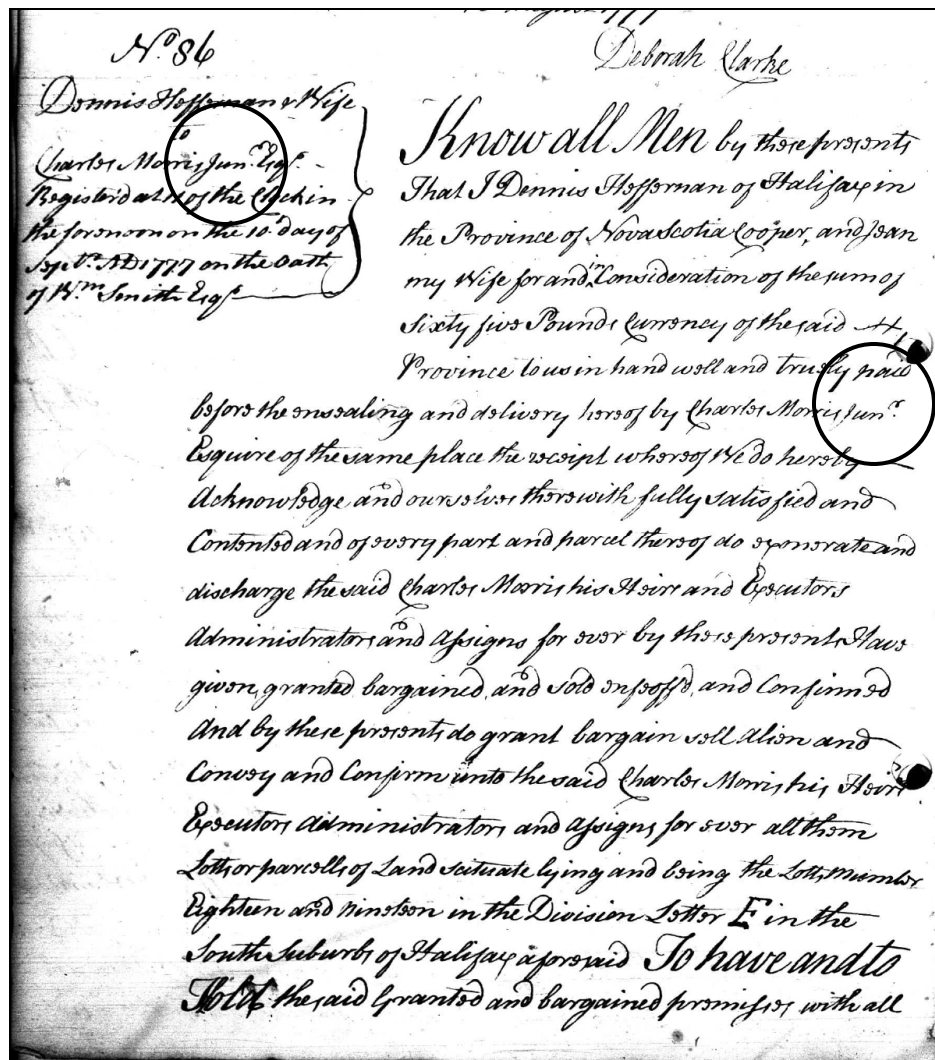 Deborah Clarke
No 86
Dennis Heffernan & Wife
to
Charles Morris Junr. Esqr.
Register'd at 11 of the Clock in
the forenoon on the 10th day of
Septr. AD 1777 on the Oath
of Wm Smith Esqr
Know all Men by these presents
That I Dennis Heffernan of Halifax in
the Province of Nova Scotia Cooper, and Jean
my Wife for and in Consideration of the sum of
Sixty five Pounds Currency of the said
Province to us in hand well and truely paid
before the ensealing and delivery hereof by Charles Morris Junr.
Esquire of the same place the receipt whereof We do hereby
Acknowledge and ourselves therewith fully satisfied and
Contented and of every part and parcel thereof do exonerate and
discharge the said Charles Morris his Heirs and Executors
Administrators and Assigns for ever by these presents Have
given, granted bargained, and sold enfeoff'd, and Confirmed
And by these presents do grant bargain sell Alien and
Convey and Confirm unto the said Charles Morris his Heirs
Executors Administrators and Assigns for ever all them
Lotts or parcells of Land scituate lying and being the Lotts Number
Eighteen and Nineteen in the Division Letter E in the
South Suburbs of Halifax aforesaid To have and to
Hold the said Granted and bargained premisses with all